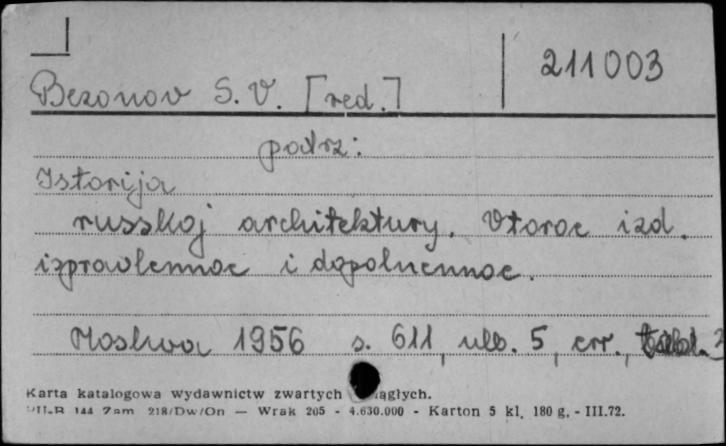 211003
Bezonov S. V. [red.]
patrz:
Istorija
russkoj architektury. Vtoroe izd.
izpravlennoe i dopolnennoe.
Moskva 1956 s. 611, ilb. 5, err., tabl.
Karta katalogowa wydawnictw zwartych ciągłych.
144 Zam. 218/Dw/On — Wrak 205 - 4.630.000 - Karton 5 kl. 180 g. - III.72.